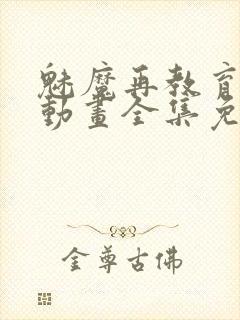 魅魔再教育
動畫全集免
金尊古佛